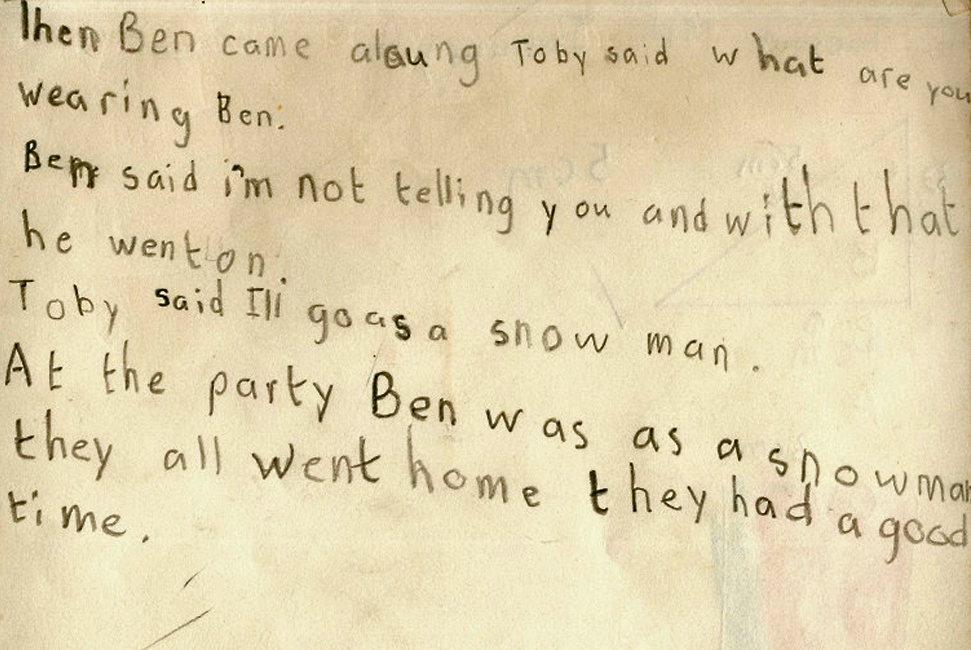 Then Ben came alaung Toby said what are you
wearing Ben.
Ben said i'm not telling you and with that
he went on.
Toby said Ili go as a snow man.
At the party Ben was as a snowman
they all went home they had a good
time.